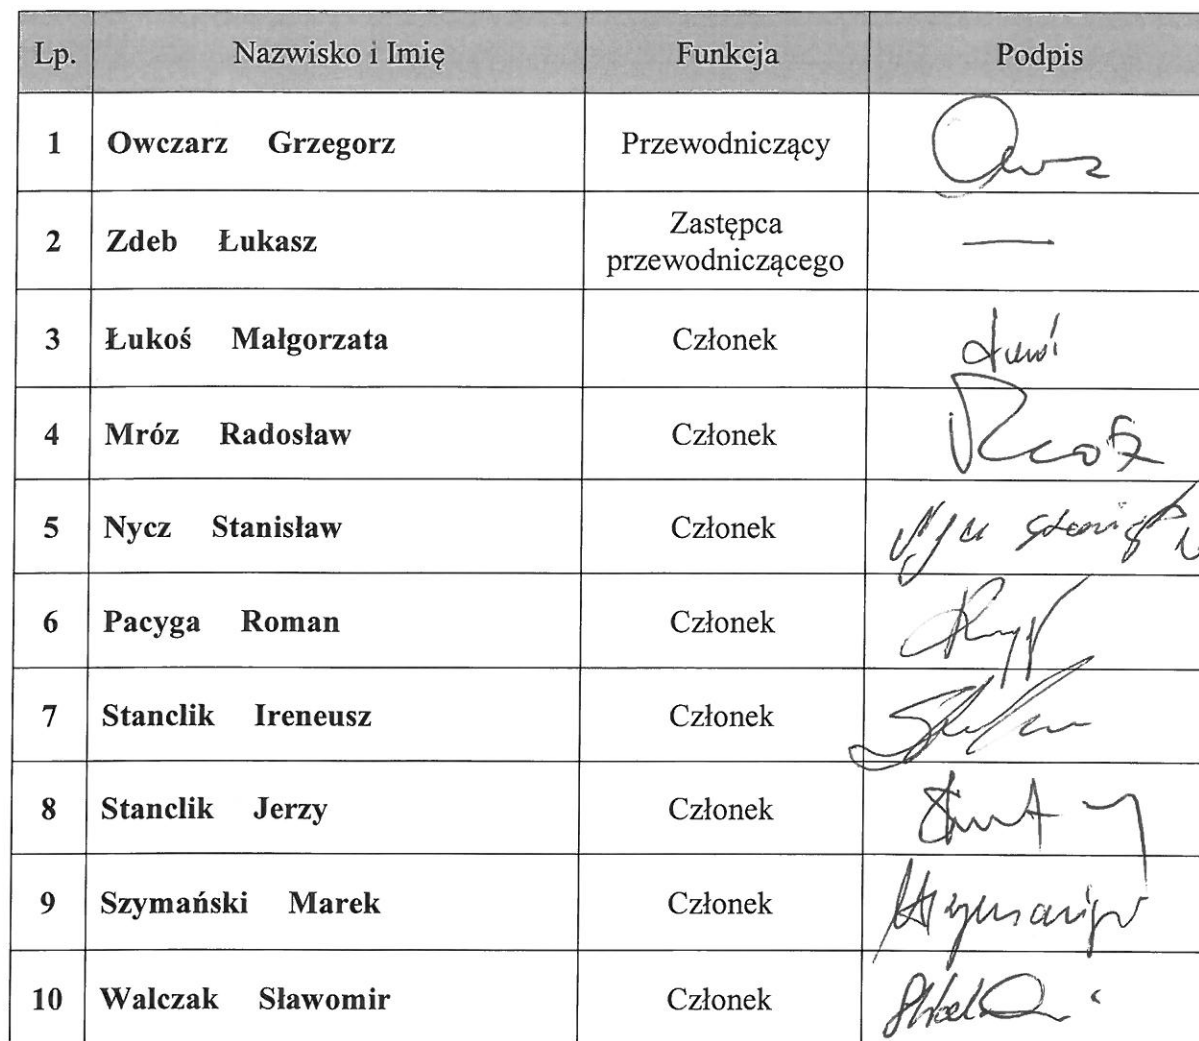 Lp. Nazwisko i Imię Funkcja Podpis
1 Owczarz Grzegorz Przewodniczący
2 Zdeb Łukasz Zastępca przewodniczącego —
3 Łukoś Małgorzata Członek
4 Mróz Radosław Członek
5 Nycz Stanisław Członek
6 Pacyga Roman Członek
7 Stanclik Ireneusz Członek
8 Stanclik Jerzy Członek
9 Szymański Marek Członek
10 Walczak Sławomir Członek